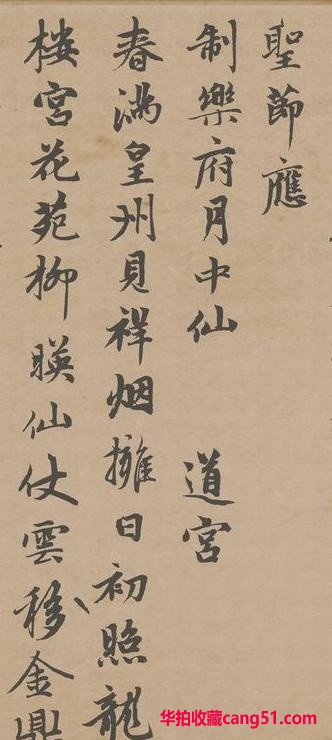 聖節應
制樂府月中仙 道宮
春滿皇州見祥烟擁日初照龍
楼宮花苑柳暎仙仗雲移金鼎
华拍收藏cang51.com